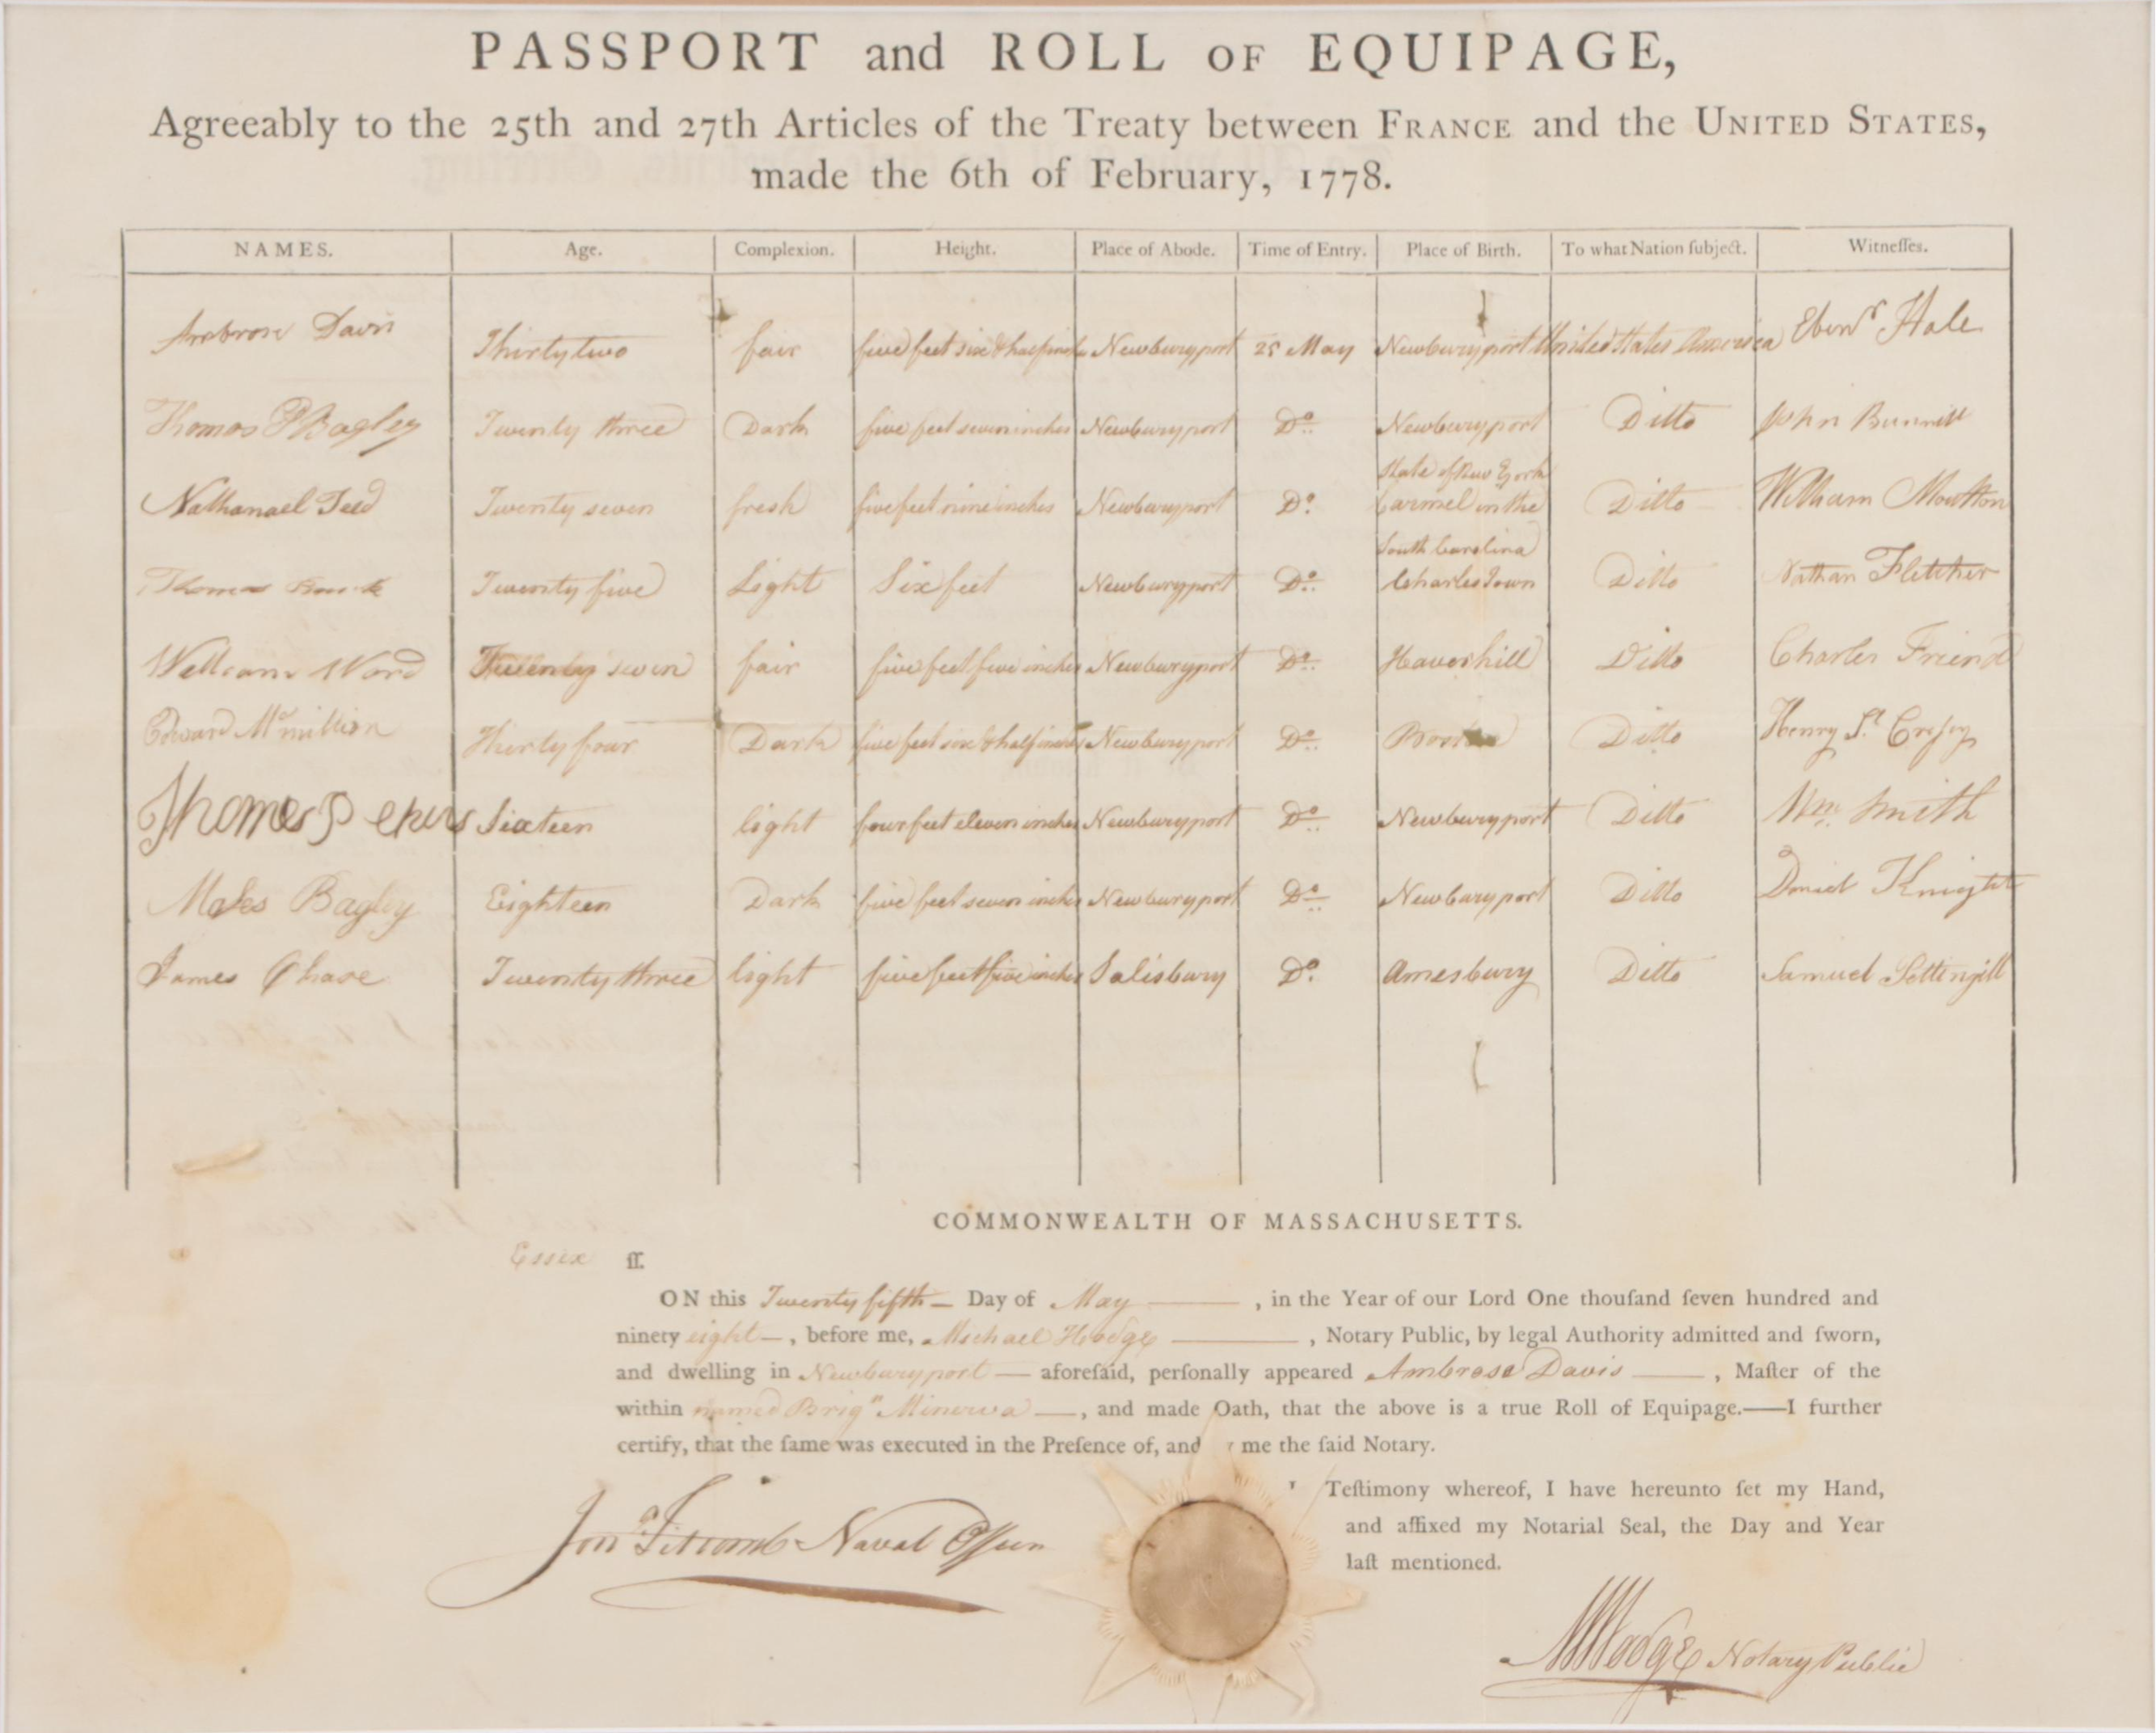 PASSPORT and ROLL OF EQUIPAGE,
Agreeably to the 25th and 27th Articles of the Treaty between FRANCE and the UNITED STATES,
made the 6th of February, 1778.
NAMES. Age. Complexion. Height. Place of Abode. Time of Entry. Place of Birth. To what Nation ſubject. Witneſſes.
Ambrose Davis Thirty two fair five feet six & half inch Newburyport 25 May Newburyport United States America Ebenr Hale
Thomas P Bagley Twenty three Dark five feet seven inches Newburyport Do Newburyport Ditto John
Nathanael Teed Twenty seven fresh five feet nine inches Newburyport Do. State of New York Carmel in the Ditto William Moulton
Thomas Twenty five Light Six feet Newburyport Do South Carolina Charles Town Ditto Nathan Fletcher
William Ward Twenty seven fair five feet five inches Newburyport Do Haverhill Ditto Charles Friend
Edward Mcmillion Thirty four Dark five feet six & half inches Newburyport Do Boston Ditto Henry
Thomas Sixteen light four feet eleven inches Newburyport Do Newburyport Ditto Wm. Smith
Moſes Bagley Eighteen Dark five feet seven inches Newburyport Do Newburyport Ditto Daniel Knight
James Chase Twenty three light five feet five inches Salisbury Do. Amesbury Ditto Samuel
COMMONWEALTH OF MASSACHUSETTS.
Essex ſſ.
ON this Twenty fifth— Day of May ——, in the Year of our Lord One thouſand ſeven hundred and
ninety eight—, before me, Michael Hodge ——, Notary Public, by legal Authority admitted and ſworn,
and dwelling in Newburyport — aforeſaid, perſonally appeared Ambrose Davis ——, Maſter of the
within named Brign Minerva —, and made Oath, that the above is a true Roll of Equipage.——I further
certify, that the ſame was executed in the Preſence of, and me the ſaid Notary.
Teſtimony whereof, I have hereunto ſet my Hand,
and affixed my Notarial Seal, the Day and Year
laſt mentioned.
Jona Titcomb Naval Officer
M Hodge Notary Public